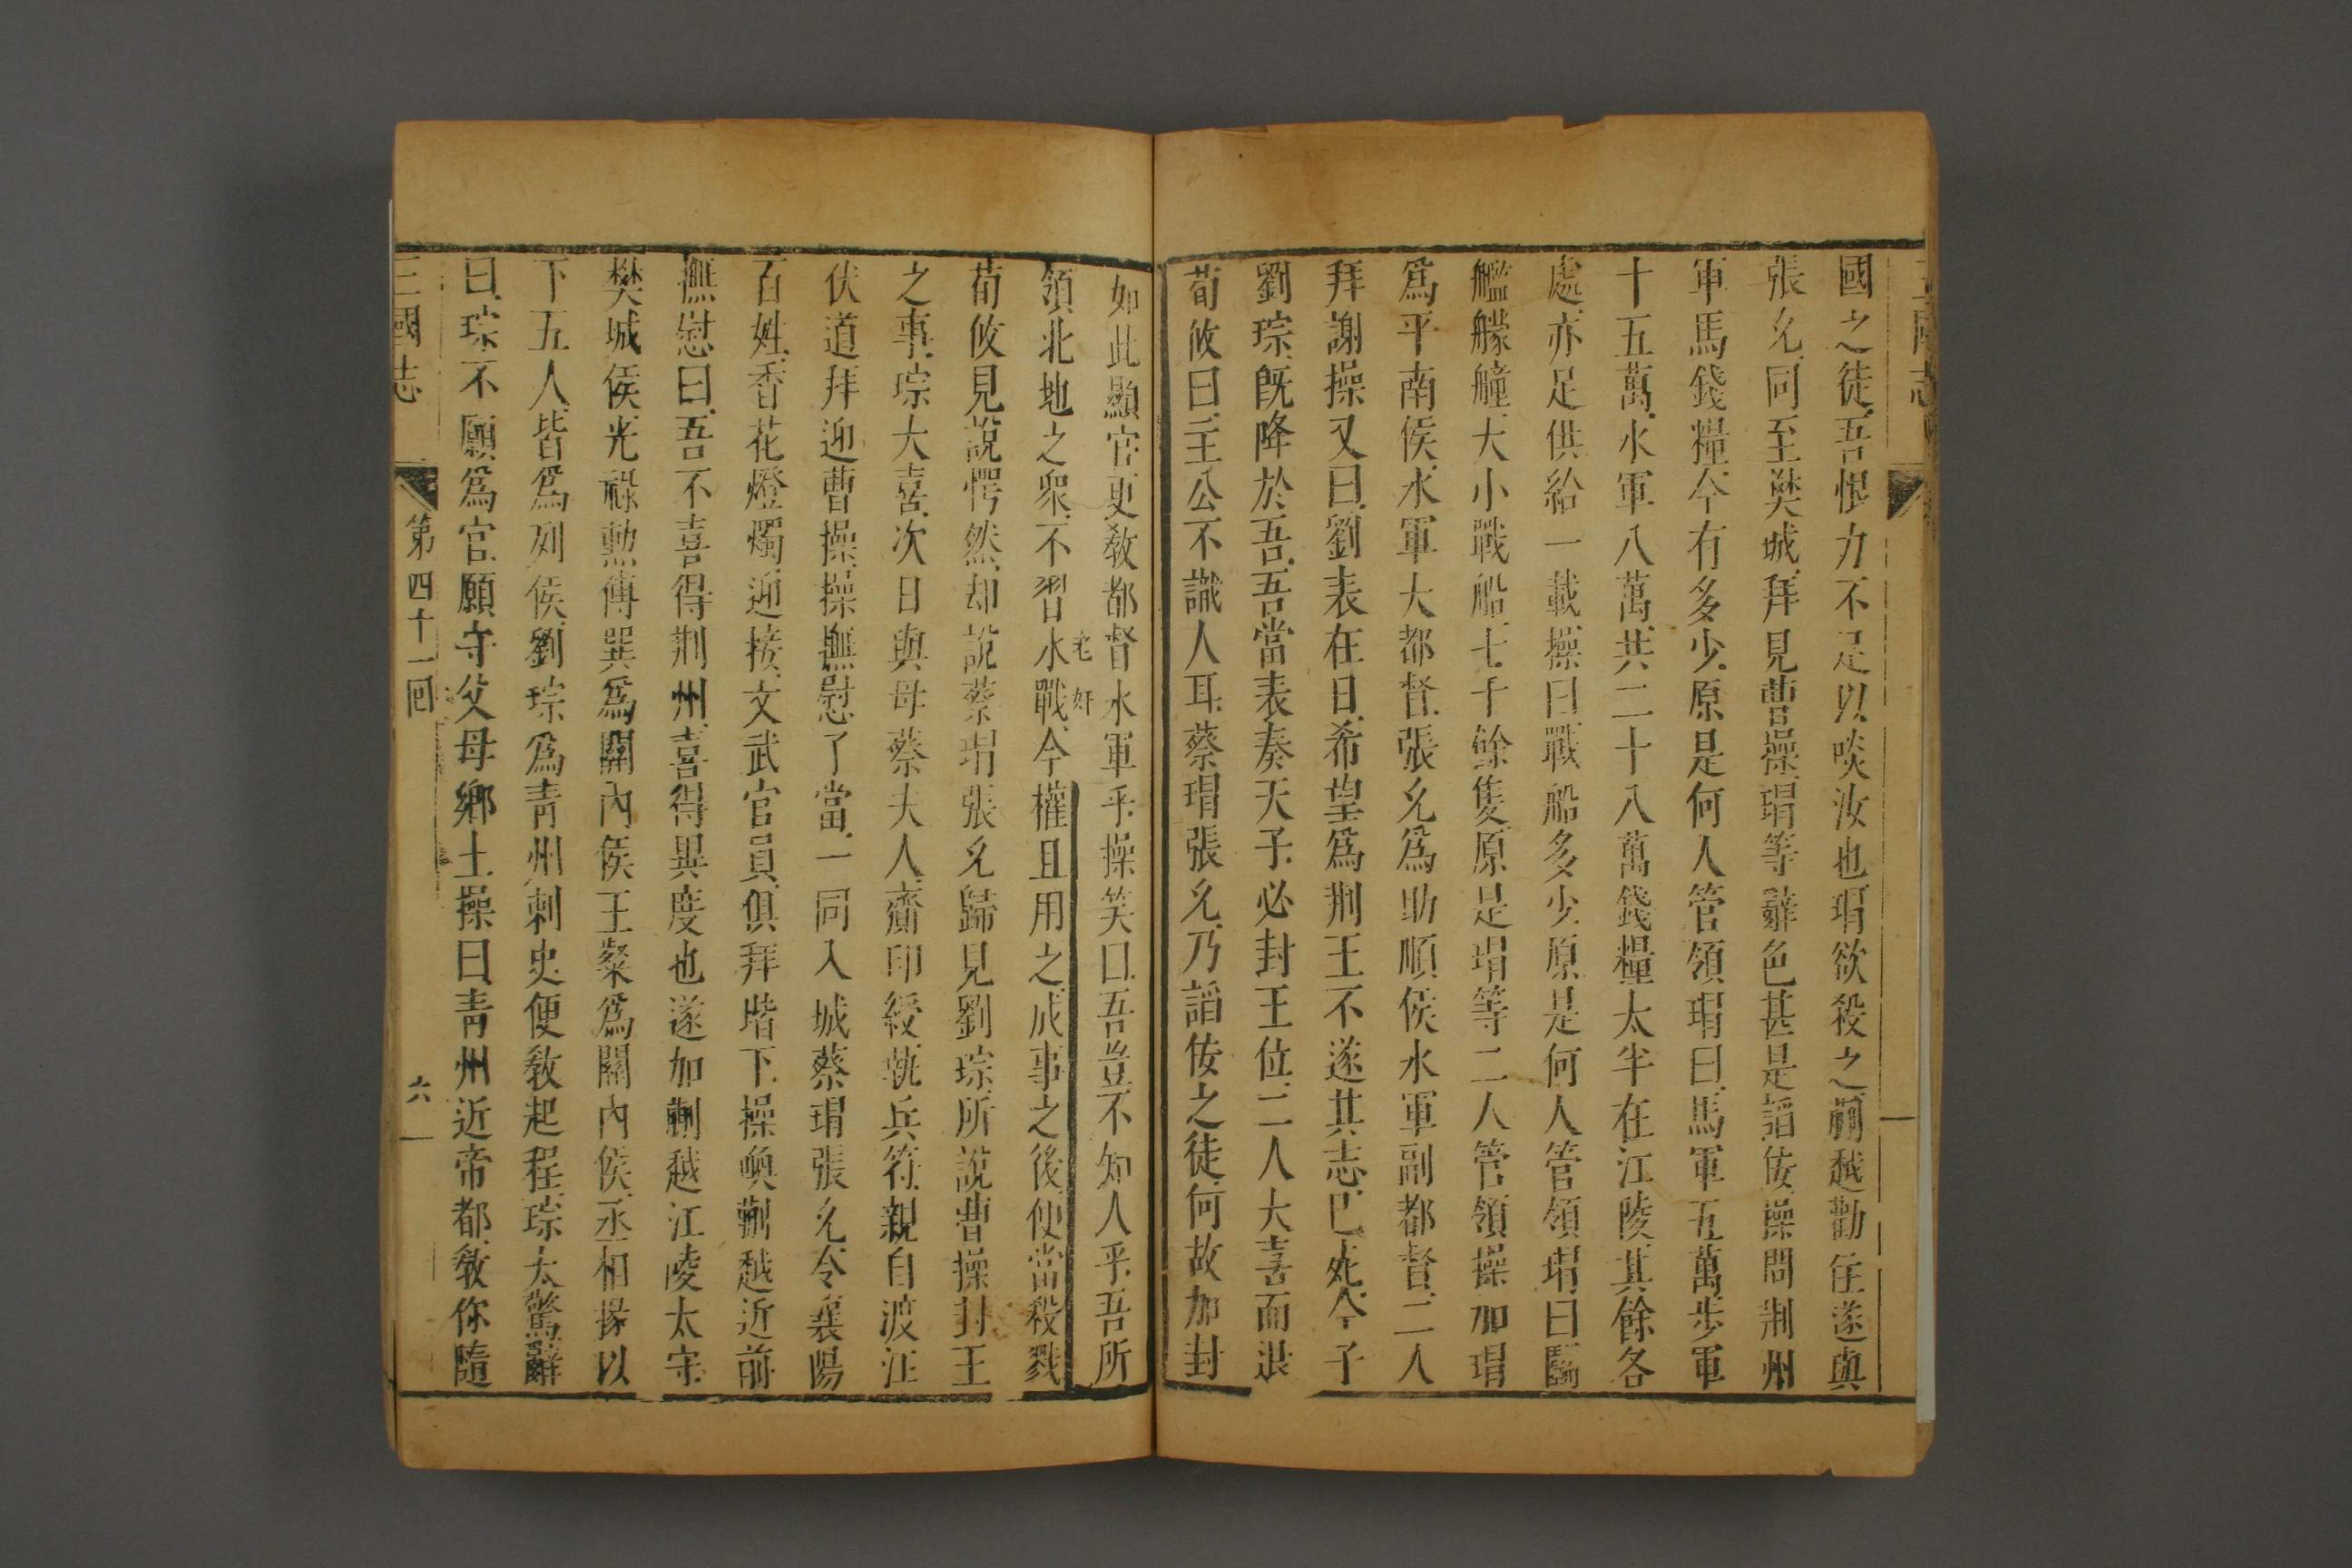 國之徒吾恨力不足以啖汝也瑁欲殺之蒯越勸住遂與
張允同至樊城拜見曹操瑁等辭色甚是謟佞操問荆州
軍馬錢糧今有多少原是何人管領瑁曰馬軍五萬步軍
十五萬水軍八萬共二十八萬錢糧太半在江陵其餘各
處亦足供給一載操曰戰船多少原是何人管領瑁曰鬭
艦艨艟大小戰船七千餘隻原是瑁等二人管領操加瑁
爲平南侯水軍大都督張允爲助順侯水軍副都督二人
拜謝操又曰劉表在日希望爲荆王不遂其志已死今子
劉琮旣降於吾吾當表奏天子必封王位二人大喜而退
荀攸曰主公不識人耳蔡瑁張允乃謟佞之徒何故加封
如此顯官更敎都督水軍乎操笑曰吾豈不知人乎吾所
領北地之衆不習水戰今權且用之成事之後便當殺戮
老奸
荀攸見說愕然却說蔡瑁張允歸見劉琮所說曹操封王
之事琮大喜次日與母蔡夫人齎印綬執兵符親自渡江
伏道拜迎曹操操撫慰了當一同入城蔡瑁張允令襄陽
百姓香花燈燭迎接文武官員俱拜堦下操喚蒯越近前
撫慰曰吾不喜得荆州喜得異度也遂加蒯越江陵太守
樊城侯光祿勲傅巽爲關內侯王粲爲關內侯丞相掾以
下五人皆爲列侯劉琮爲青州刺史便敎起程琮大驚辭
曰琮不願爲官願守父母鄉土操曰青州近帝都敎你隨
三國志 第四十一回 六